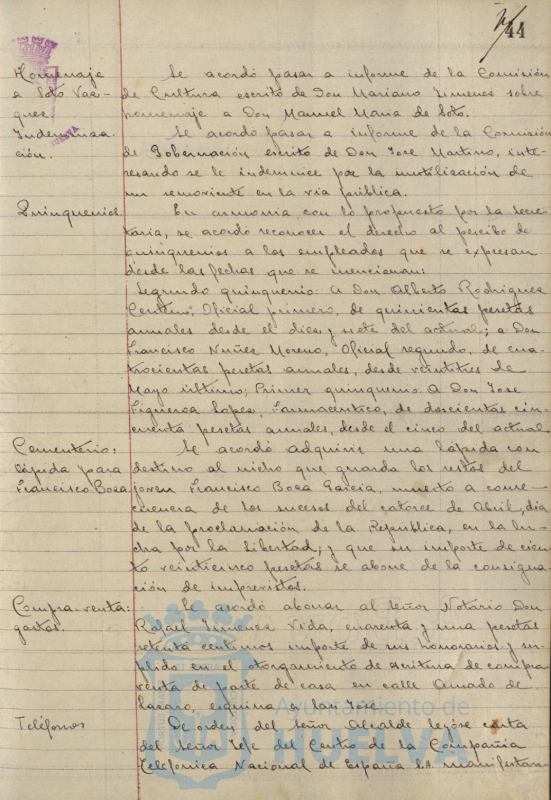 44
Homenaje
a Soto Vaz-
quez
Se acordó pasar a informe de la Comisión
de Cultura escrito de Don Mariano Jimenez sobre
homenaje a Don Manuel Maria de Soto.
Indemniza-
ción.
HUELVA
Se acordó pasar a informe de la Comisión
de Gobernación escrito de Don Jose Martino, inte-
resando se le indemnice por la inutilización de
un semoviente en la via pública.
Quinquenios.
En armonia con lo propuesto por la Secre-
taria, se acordó reconocer el derecho al percibo de
quinquenios a los empleados que se expresan
desde las fechas que se mencionan:
Segundo quinquenio: A Don Alberto Rodriguez
Centeno, Oficial primero, de quinientas pesetas
anuales desde el diez y siete del actual; a Don
Francisco Nuñez Moreno, Oficial segundo, de cua-
trocientas pesetas anuales, desde veintitres de
Mayo último; Primer quinquenio: A Don Jose
Figueroa Lopez, Farmaceutico, de doscientas cin-
cuenta pesetas anuales, desde el cinco del actual.
Cementerio:
lápida para
Francisco Boza
Se acordó adquirir una lápida con
destino al nicho que guarda los restos del
joven Francisco Boza Garcia, muerto a conse-
cuencia de los sucesos del catorce de Abril, dia
de la proclamación de la Republica, en la lu-
cha por la libertad; y que su importe de cien-
to veinticinco pesetas se abone de la consigna-
ción de imprevistos.
Compra-venta:
gastos.
Se acordó abonar al señor Notario Don
Rafael Jimenez Vida, cuarenta y una pesetas
setenta centimos importe de sus honorarios y su-
plido en el otorgamiento de escritura de compra
venta de parte de casa en calle Amado de
Lazaro, esquina a San José.
Teléfonos
De orden del señor Alcalde leyóse carta
del Señor Jefe del Centro de la Compañia
Telefonica Nacional de España S.A. manifestan-
Ayuntamiento de
HUELVA